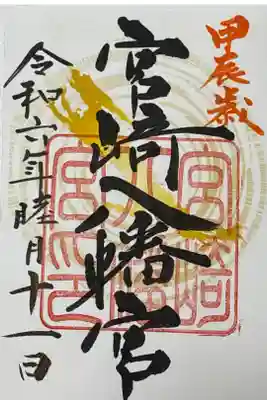 甲辰歳
宮崎八幡宮
令和六年睦月十一日
宮崎
八幡
宮印